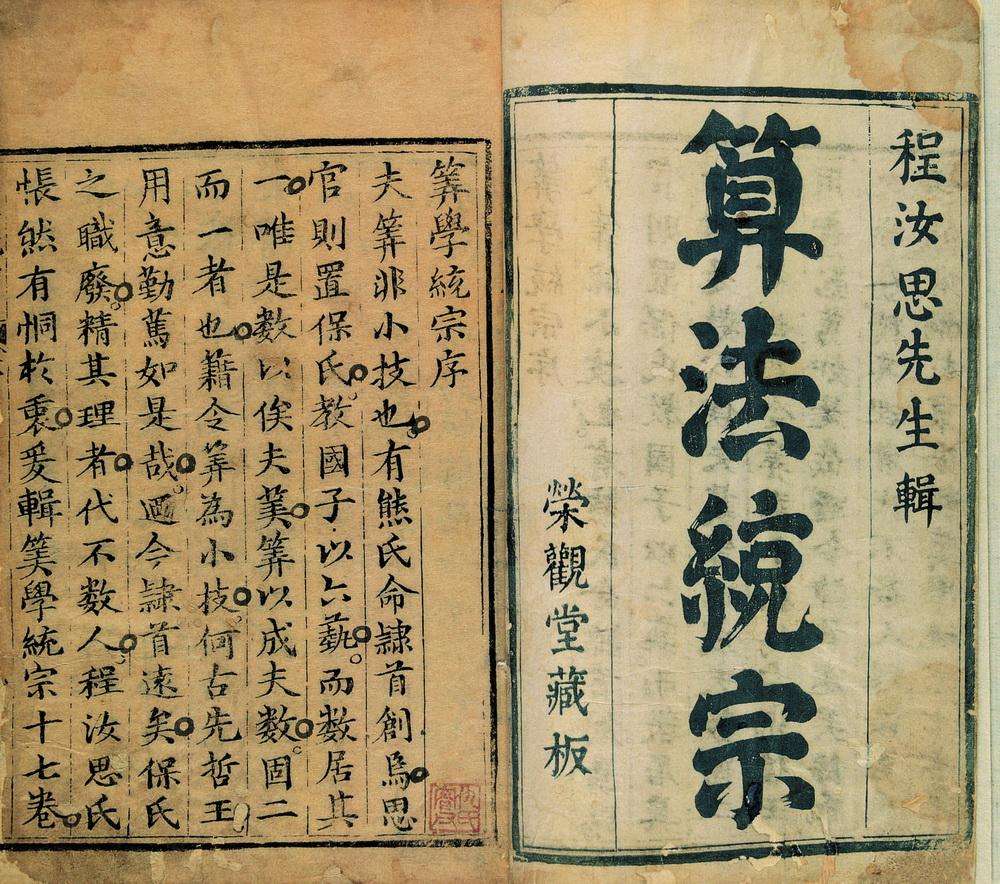 程汝思先生輯
算法統宗
榮觀堂藏板
筭學統宗序
夫筭非小技也有熊氏命隷首創爲思
官則置保氏教國子以六藝而數居其
一唯是數以俟夫筭筭以成夫數固二
而一者也籍令筭為小技何古先哲王
用意勤篤如是哉迺今隷首遠矣保氏
之職廢精其理者代不數人程汝思氏
悵然有恫於衷爰輯筭學統宗十七卷